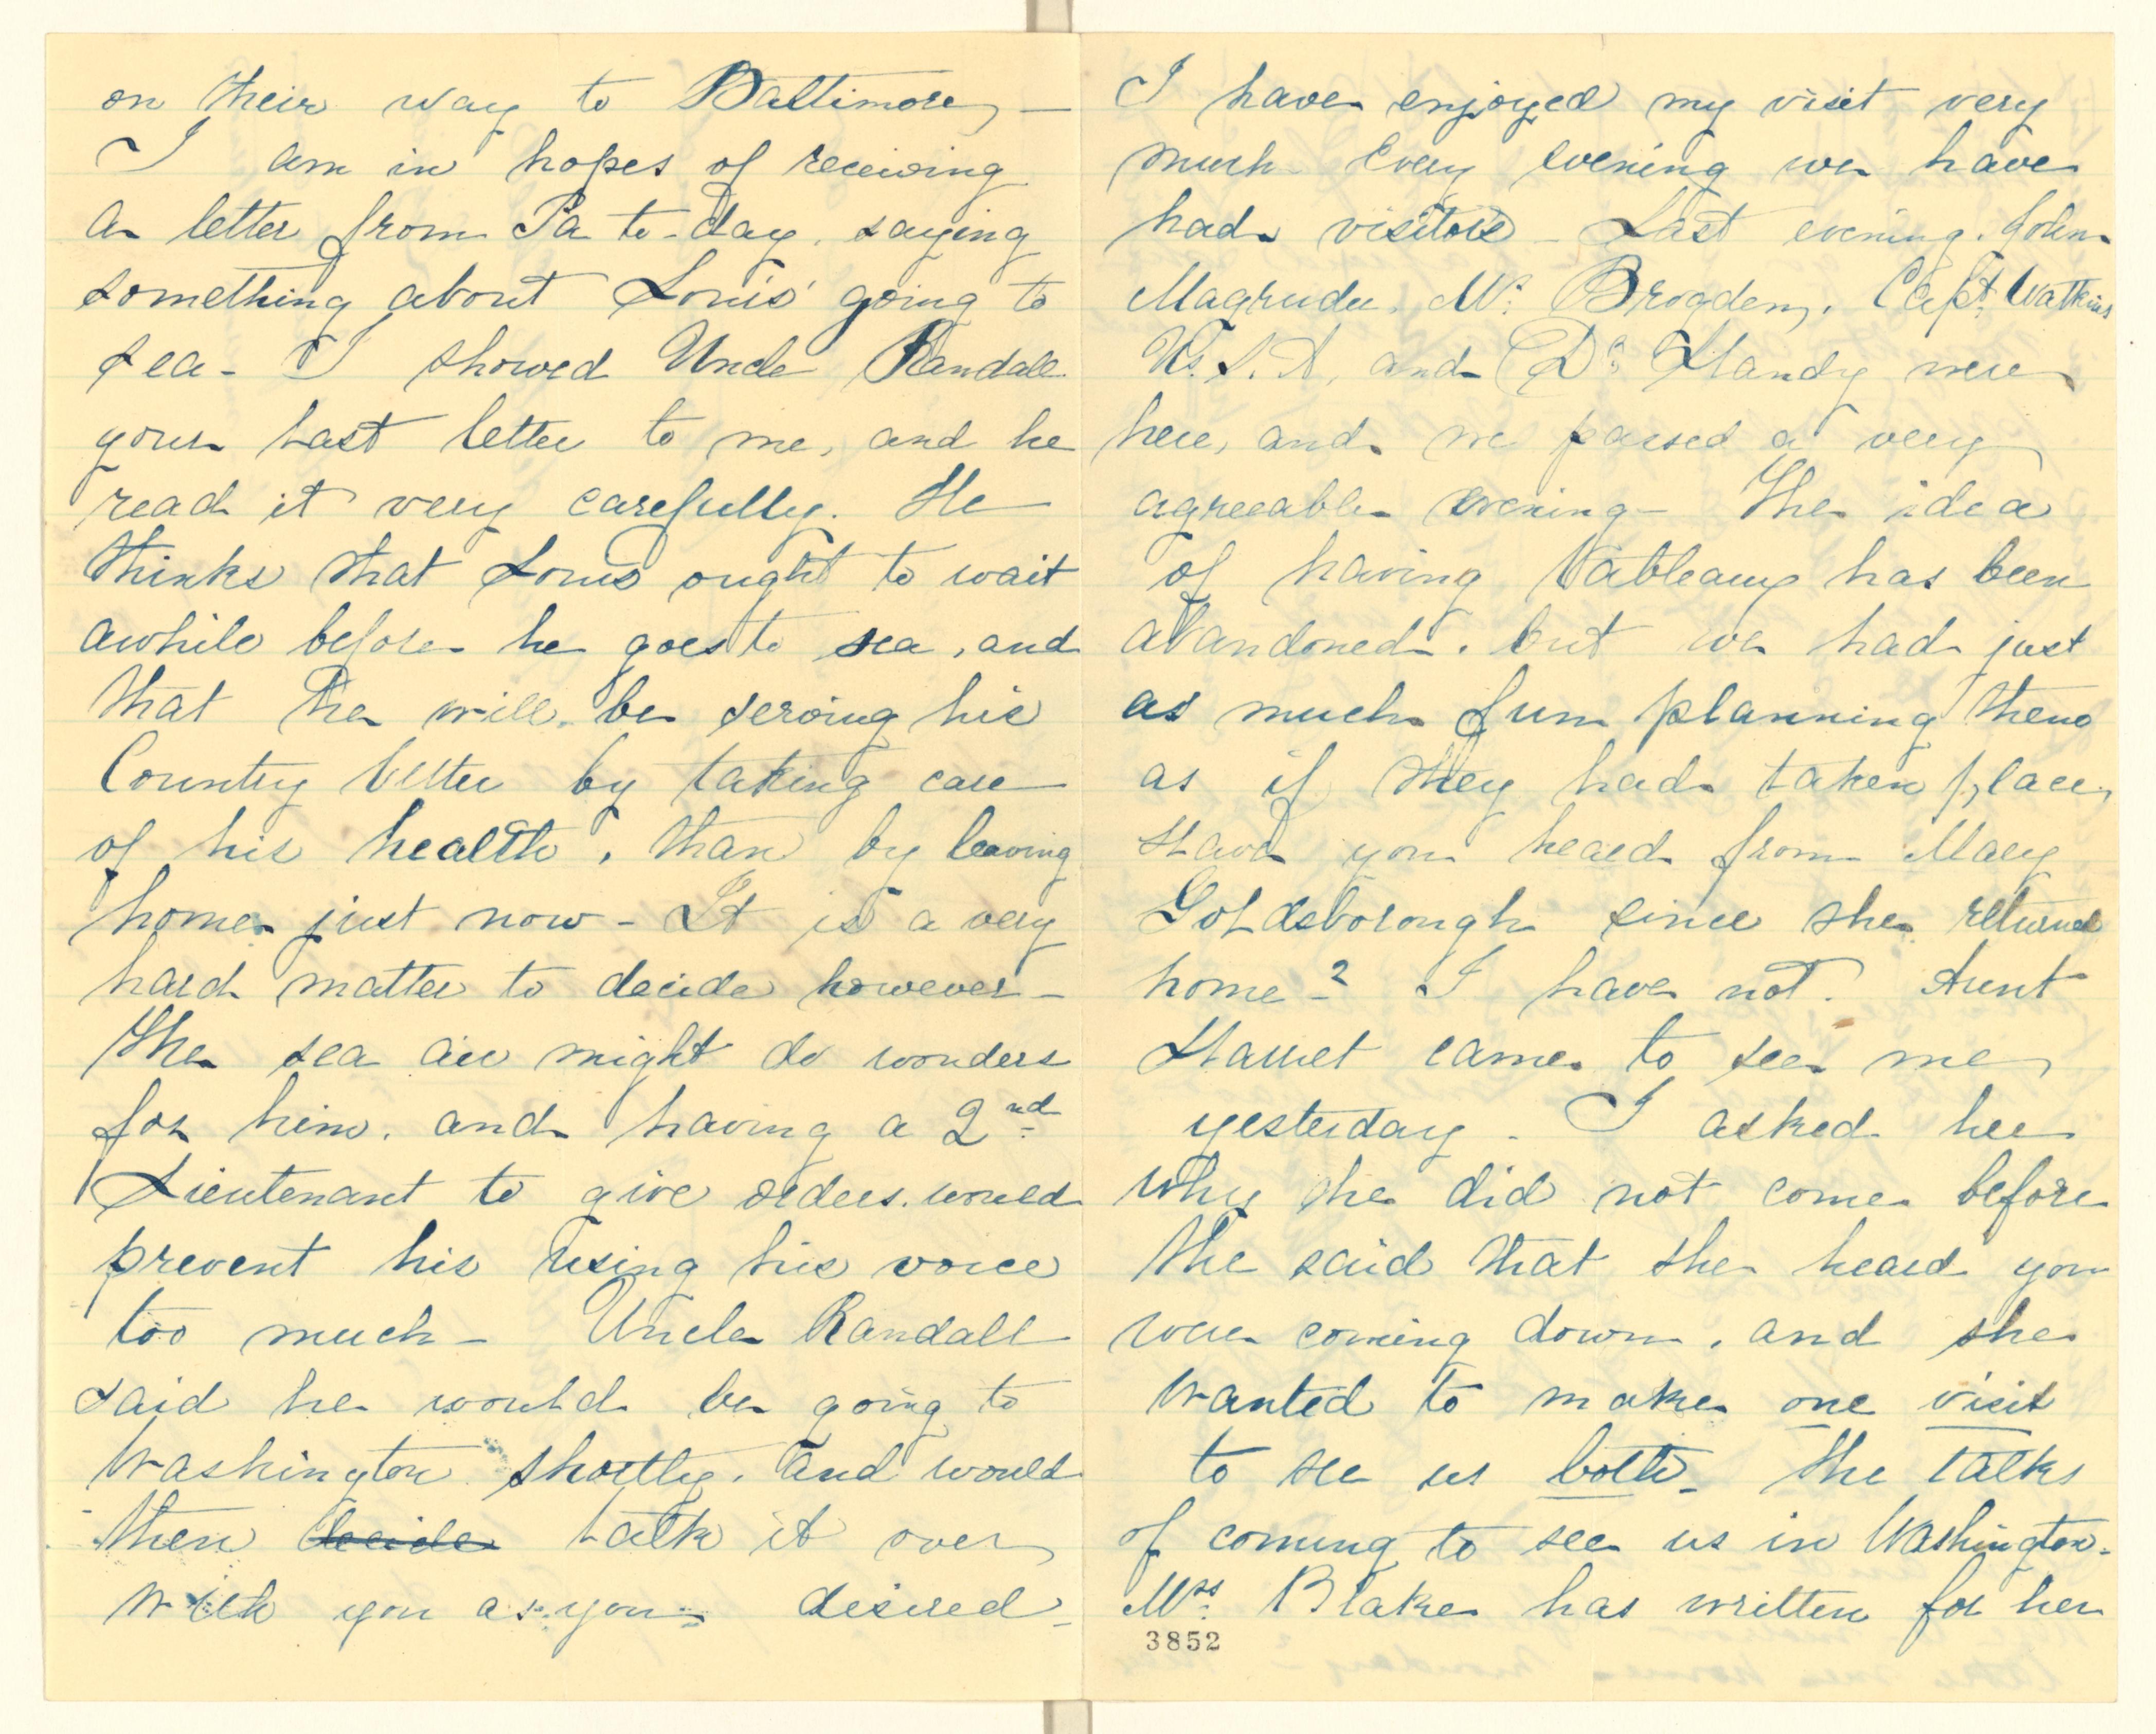 on their way to Baltimore, —
I am in hopes of receiving
a letter from Pa to-day, saying
something about Louis' going to
sea - I showed Uncle Randall
your last letter to me, and he
read it very carefully. He
thinks that Louis ought to wait
awhile before he goes to sea, and
that he will be serving his
Country better by taking care
of his health, than by leaving
home just now - It is a very
hard matter to decide however -
The sea air might do wonders
for him, and having a 2nd
Lieutenant to give orders, would
prevent his using his voice
too much - Uncle Randall
said he would be going to
Washington shortly, and would
then decide talk it over
with you as you desired -
I have enjoyed my visit very
much Every evening we have
had visitors - Last evening, John
Magruder, Mr. Brogden, Capt. Watkins
U.S.A, and Dr. Handy were
here, and we passed a very
agreeable evening - The idea
of having tableaux has been
abandoned, but we had just
as much fun planning them
as if they had taken place,
Have you heard from Mary
Goldsborough since she returned
home -? I have not. Aunt
Harriet came to see me
yesterday - I asked her
why she did not come before
She said that she heard you
were coming down, and she
wanted to make one visit
to see us both - She talks
of coming to see us in Washington -
Mrs. Blake has written for her
3852